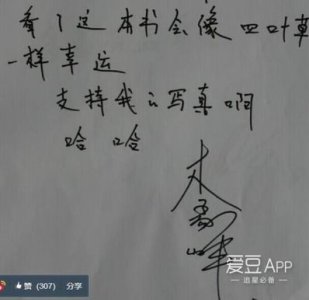 看了这本书会像四叶草
一样幸运
支持我的写真啊
哈哈
赞 (307) 分享
爱豆APP
追星必备